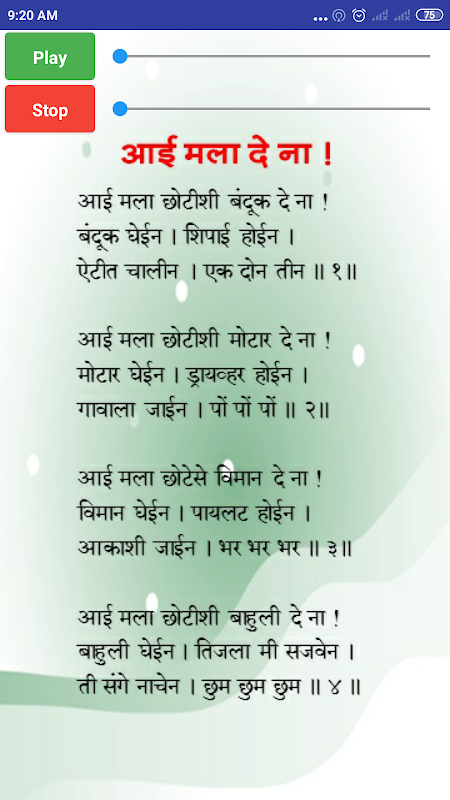 9:20 AM
75
Play
Stop
आई मला दे ना !
आई मला छोटीशी बंदूक दे ना !
बंदूक घेईन । शिपाई होईन ।
ऐटीत चालीन । एक दोन तीन ॥ १॥
आई मला छोटीशी मोटार दे ना !
मोटार घेईन । ड्रायव्हर होईन ।
गावाला जाईन । पों पों पों ॥ २॥
आई मला छोटेसे विमान दे ना !
विमान घेईन । पायलट होईन ।
आकाशी जाईन । भर भर भर ॥ ३॥
आई मला छोटीशी बाहुली दे ना !
बाहुली घेईन । तिजला मी सजवेन ।
ती संगे नाचेन । छुम छुम छुम ॥ ४ ॥